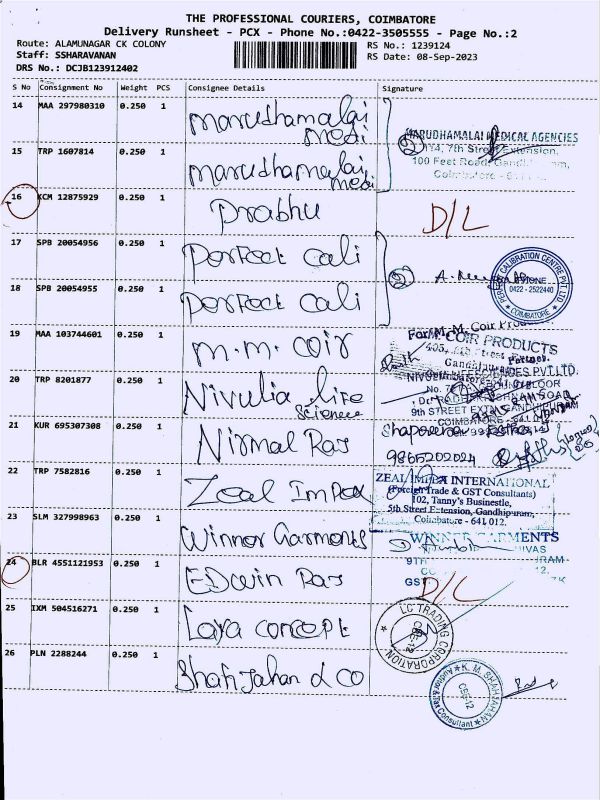 THE PROFESSIONAL COURIERS, COIMBATORE
Delivery Runsheet - PCX - Phone No.:0422-3505555 - Page No.:2
Route: ALAMUNAGAR CK COLONY
Staff: SSHARAVANAN
DRS No.: DCJB123912402
RS No.: 1239124
RS Date: 08-Sep-2023
S No Consignment No Weight PCS Consignee Details Signature
14 MAA 297980310 0.250 1 marudhamalai medi
15 TRP 1607814 0.250 1 marudhamalai medi
2
MARUDHAMALAI MEDICAL AGENCIES
7th Street Extension,
100 Feet Road,
16 KCM 12875929 0.250 1 Prabhu D/L
17 SPB 20054956 0.250 1 Perfect Cali
18 SPB 20054955 0.250 1 Perfect Cali
2
CALIBRATION CENTRE PVT LTD
PHONE
0422 - 2522440
COIMBATORE
19 MAA 103744601 0.250 1 m.m. coir
For M.M. Coir
COIR PRODUCTS
Partner.
20 TRP 8201877 0.250 1 Nivulia life Science
PVT.LTD.
9th STREET EXTN
21 KUR 695307308 0.250 1 Nirmal Raj
9865202024
22 TRP 7582816 0.250 1 Zeal Impex
ZEAL IMPEX INTERNATIONAL
(Foreign Trade & GST Consultants)
102, Tanny's Businestle,
5th Street Extension, Gandhipuram,
Coimbatore - 641 012.
23 SLM 327998963 0.250 1 Winner Garments
WINNER GARMENTS
24 BLR 4551121953 0.250 1 Edwin Raj D/L
25 IXM 504516271 0.250 1 Laya concept
LC TRADING CORPORATION
CBE-12
26 PLN 2288244 0.250 1 Shahjahan & CO
K. M. SHAHJAHAN
Auditor & Tax Consultant
CBE-12